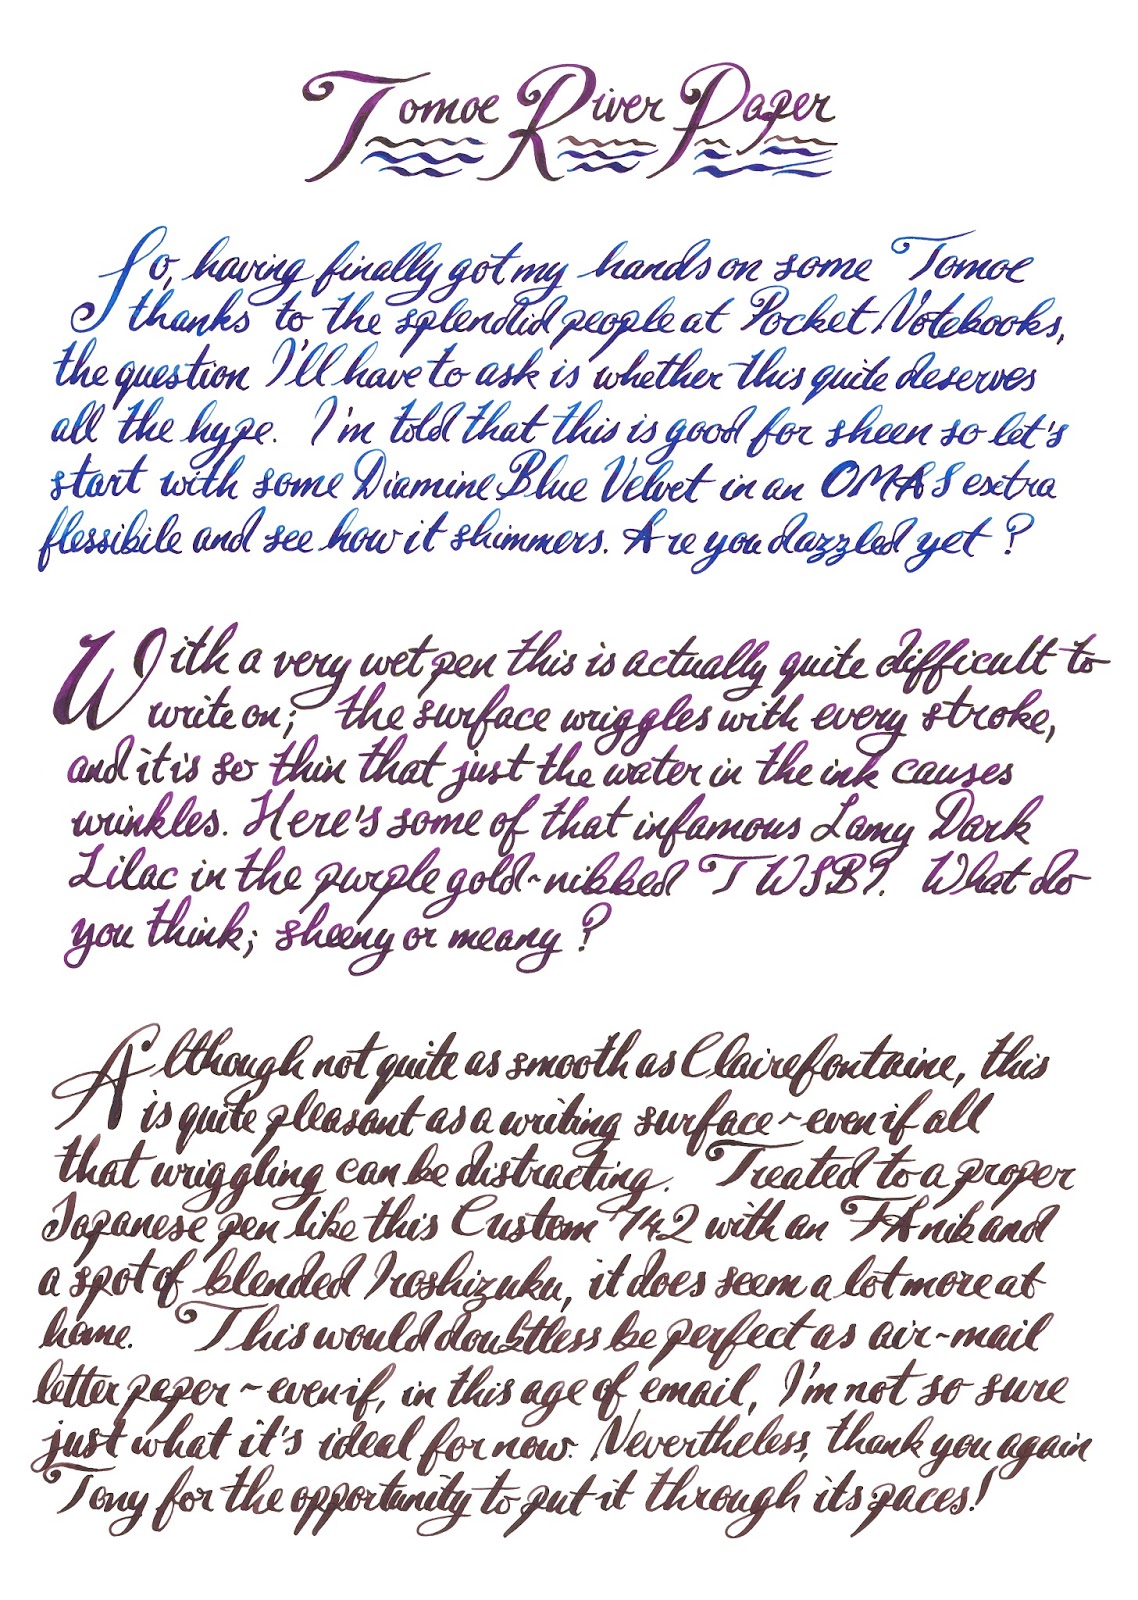 Tomoe River Paper
So, having finally got my hands on some Tomoe
thanks to the splendid people at Pocket Notebooks,
the question I'll have to ask is whether this quite deserves
all the hype. I'm told that this is good for sheen so let's
start with some Diamine Blue Velvet in an OMAS extra
flessibile and see how it shimmers. Are you dazzled yet?
With a very wet pen this is actually quite difficult to
write on; the surface wriggles with every stroke,
and it is so thin that just the water in the ink causes
wrinkles. Here's some of that infamous Lamy Dark
Lilac in the purple gold-nibbed TWSBI. What do
you think; sheeny or meany?
Although not quite as smooth as Clairefontaine, this
is quite pleasant as a writing surface ~ even if all
that wriggling can be distracting. Treated to a proper
Japanese pen like this Custom 742 with an FA nib and
a spot of blended Iroshizuku, it does seem a lot more at
home. This would doubtless be perfect as air-mail
letter paper ~ even if, in this age of email, I'm not so sure
just what it's ideal for now. Nevertheless, thank you again
Tony for the opportunity to put it through its paces!